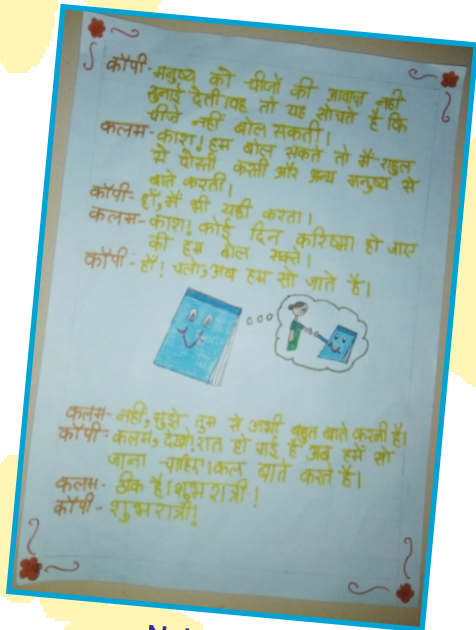 कॉपी- मनुष्य को चीजों की आवाज़ नही
सुनाई देती। वह तो यह सोचते है कि
चीजे नहीं बोल सकती।
कलम- काश! हम बोल सकते तो मैं राहुल
से दोस्ती करती और अन्य मनुष्य से
बाते करती।
कॉपी- हाँ, मैं भी यही करता।
कलम- काश! कोई दिन करिश्मा हो जाए
की हम बोल सकते।
कॉपी- हाँ! चलो, अब हम सो जाते है।
कलम- नहीं, मुझे तुम से अभी बहुत बाते करनी है।
कॉपी- कलम, देखो! रात हो गई है अब हमें सो
जाना चाहिए। कल बाते करते है।
कलम- ठीक है। शुभरात्री!
कॉपी- शुभरात्री!